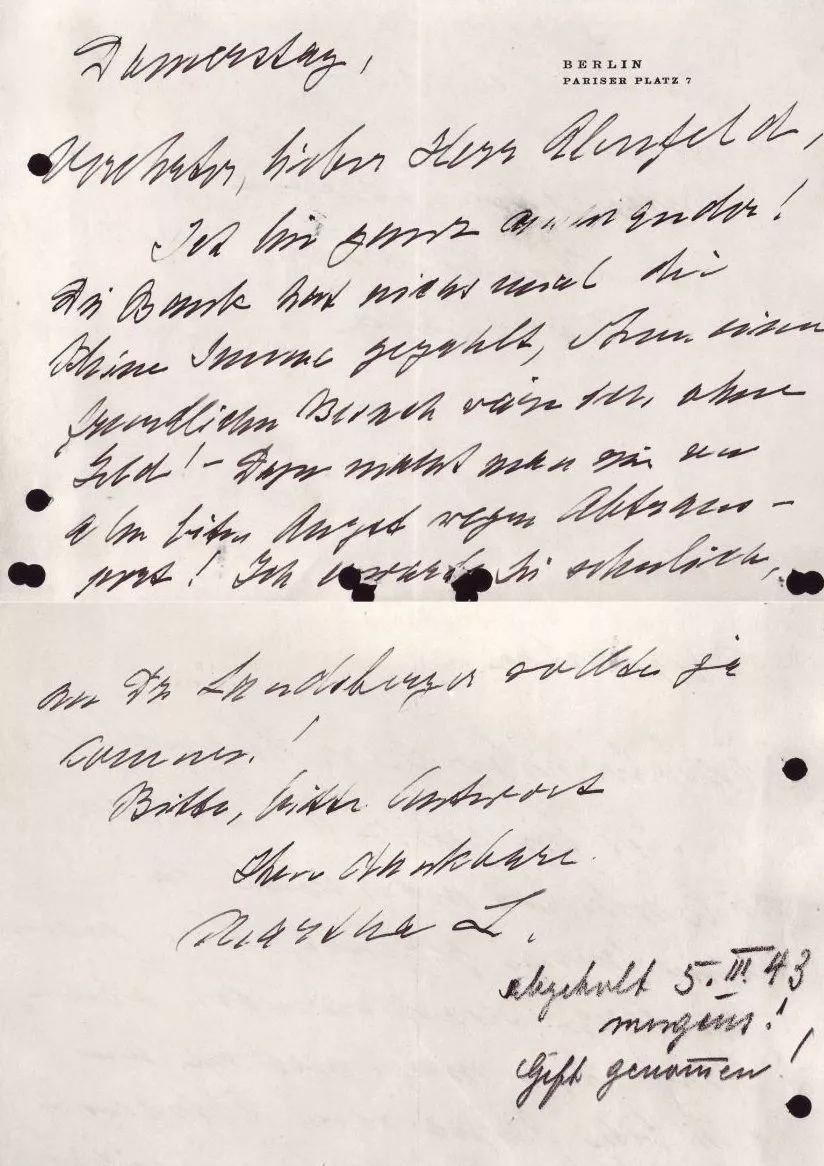 Donnerstag,
BERLIN
PARISER PLATZ 7
Verehrter, lieber Herr Ahlnfeld,
Ich bin ganz auseinander!
Die Bank hat nicht mal die
kleine Summe gezahlt, ohne einen
freundlichen Besuch wäre ich ohne
Geld! - Dazu macht man mir von
allen Seiten Angst wegen Abtrans-
port! Ich erwarte Sie sehnlich,
an Dr Landsberger sollte ja
kommen!
Bitte, bitte Antwort
Ihre dankbare
Martha L.
abgeholt 5. III. 43
morgens!
Gift genom̅en!